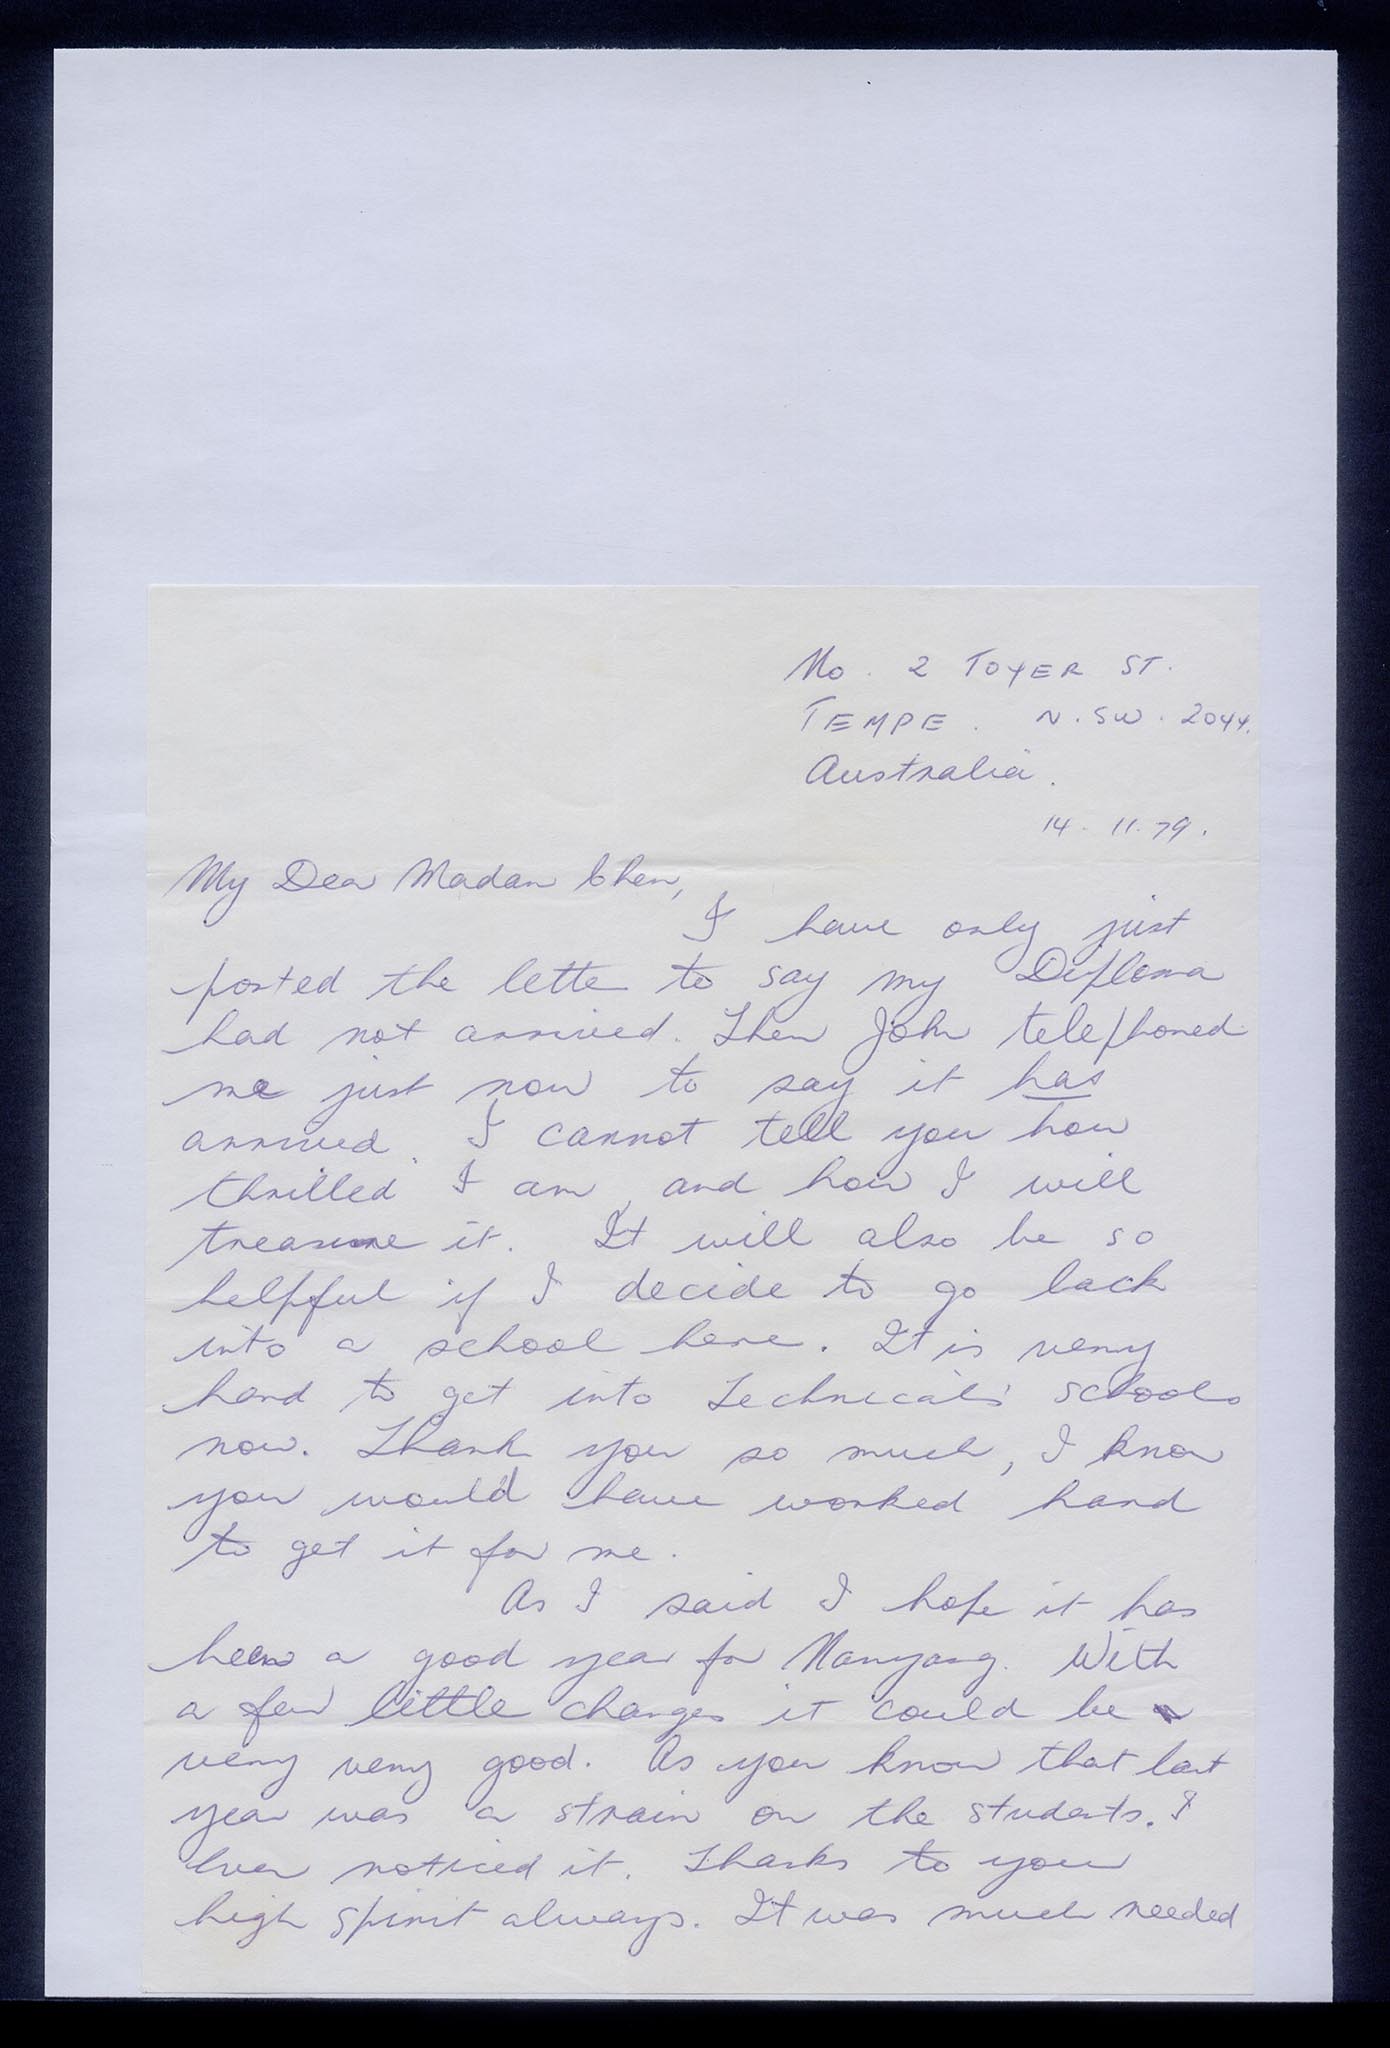 No. 2 TOYER ST.
TEMPE. N.SW. 2044.
Australia.
14. 11. 79.
My Dear Madam Chen,
I have only just
posted the letter to say my Diploma
had not arrived. Then John telephoned
me just now to say it has
arrived. I cannot tell you how
thrilled I am, and how I will
treasure it. It will also be so
helpful if I decide to go back
into a school here. It is very
hard to get into Technical schools
now. Thank you so much, I know
you would have worked hard
to get it for me.
As I said I hope it has
been a good year for Nanyang. With
a few little changes it could be
very very good. As you know that last
year was a strain on the students. I
even noticed it. Thanks to your
high spirit always. It was much needed